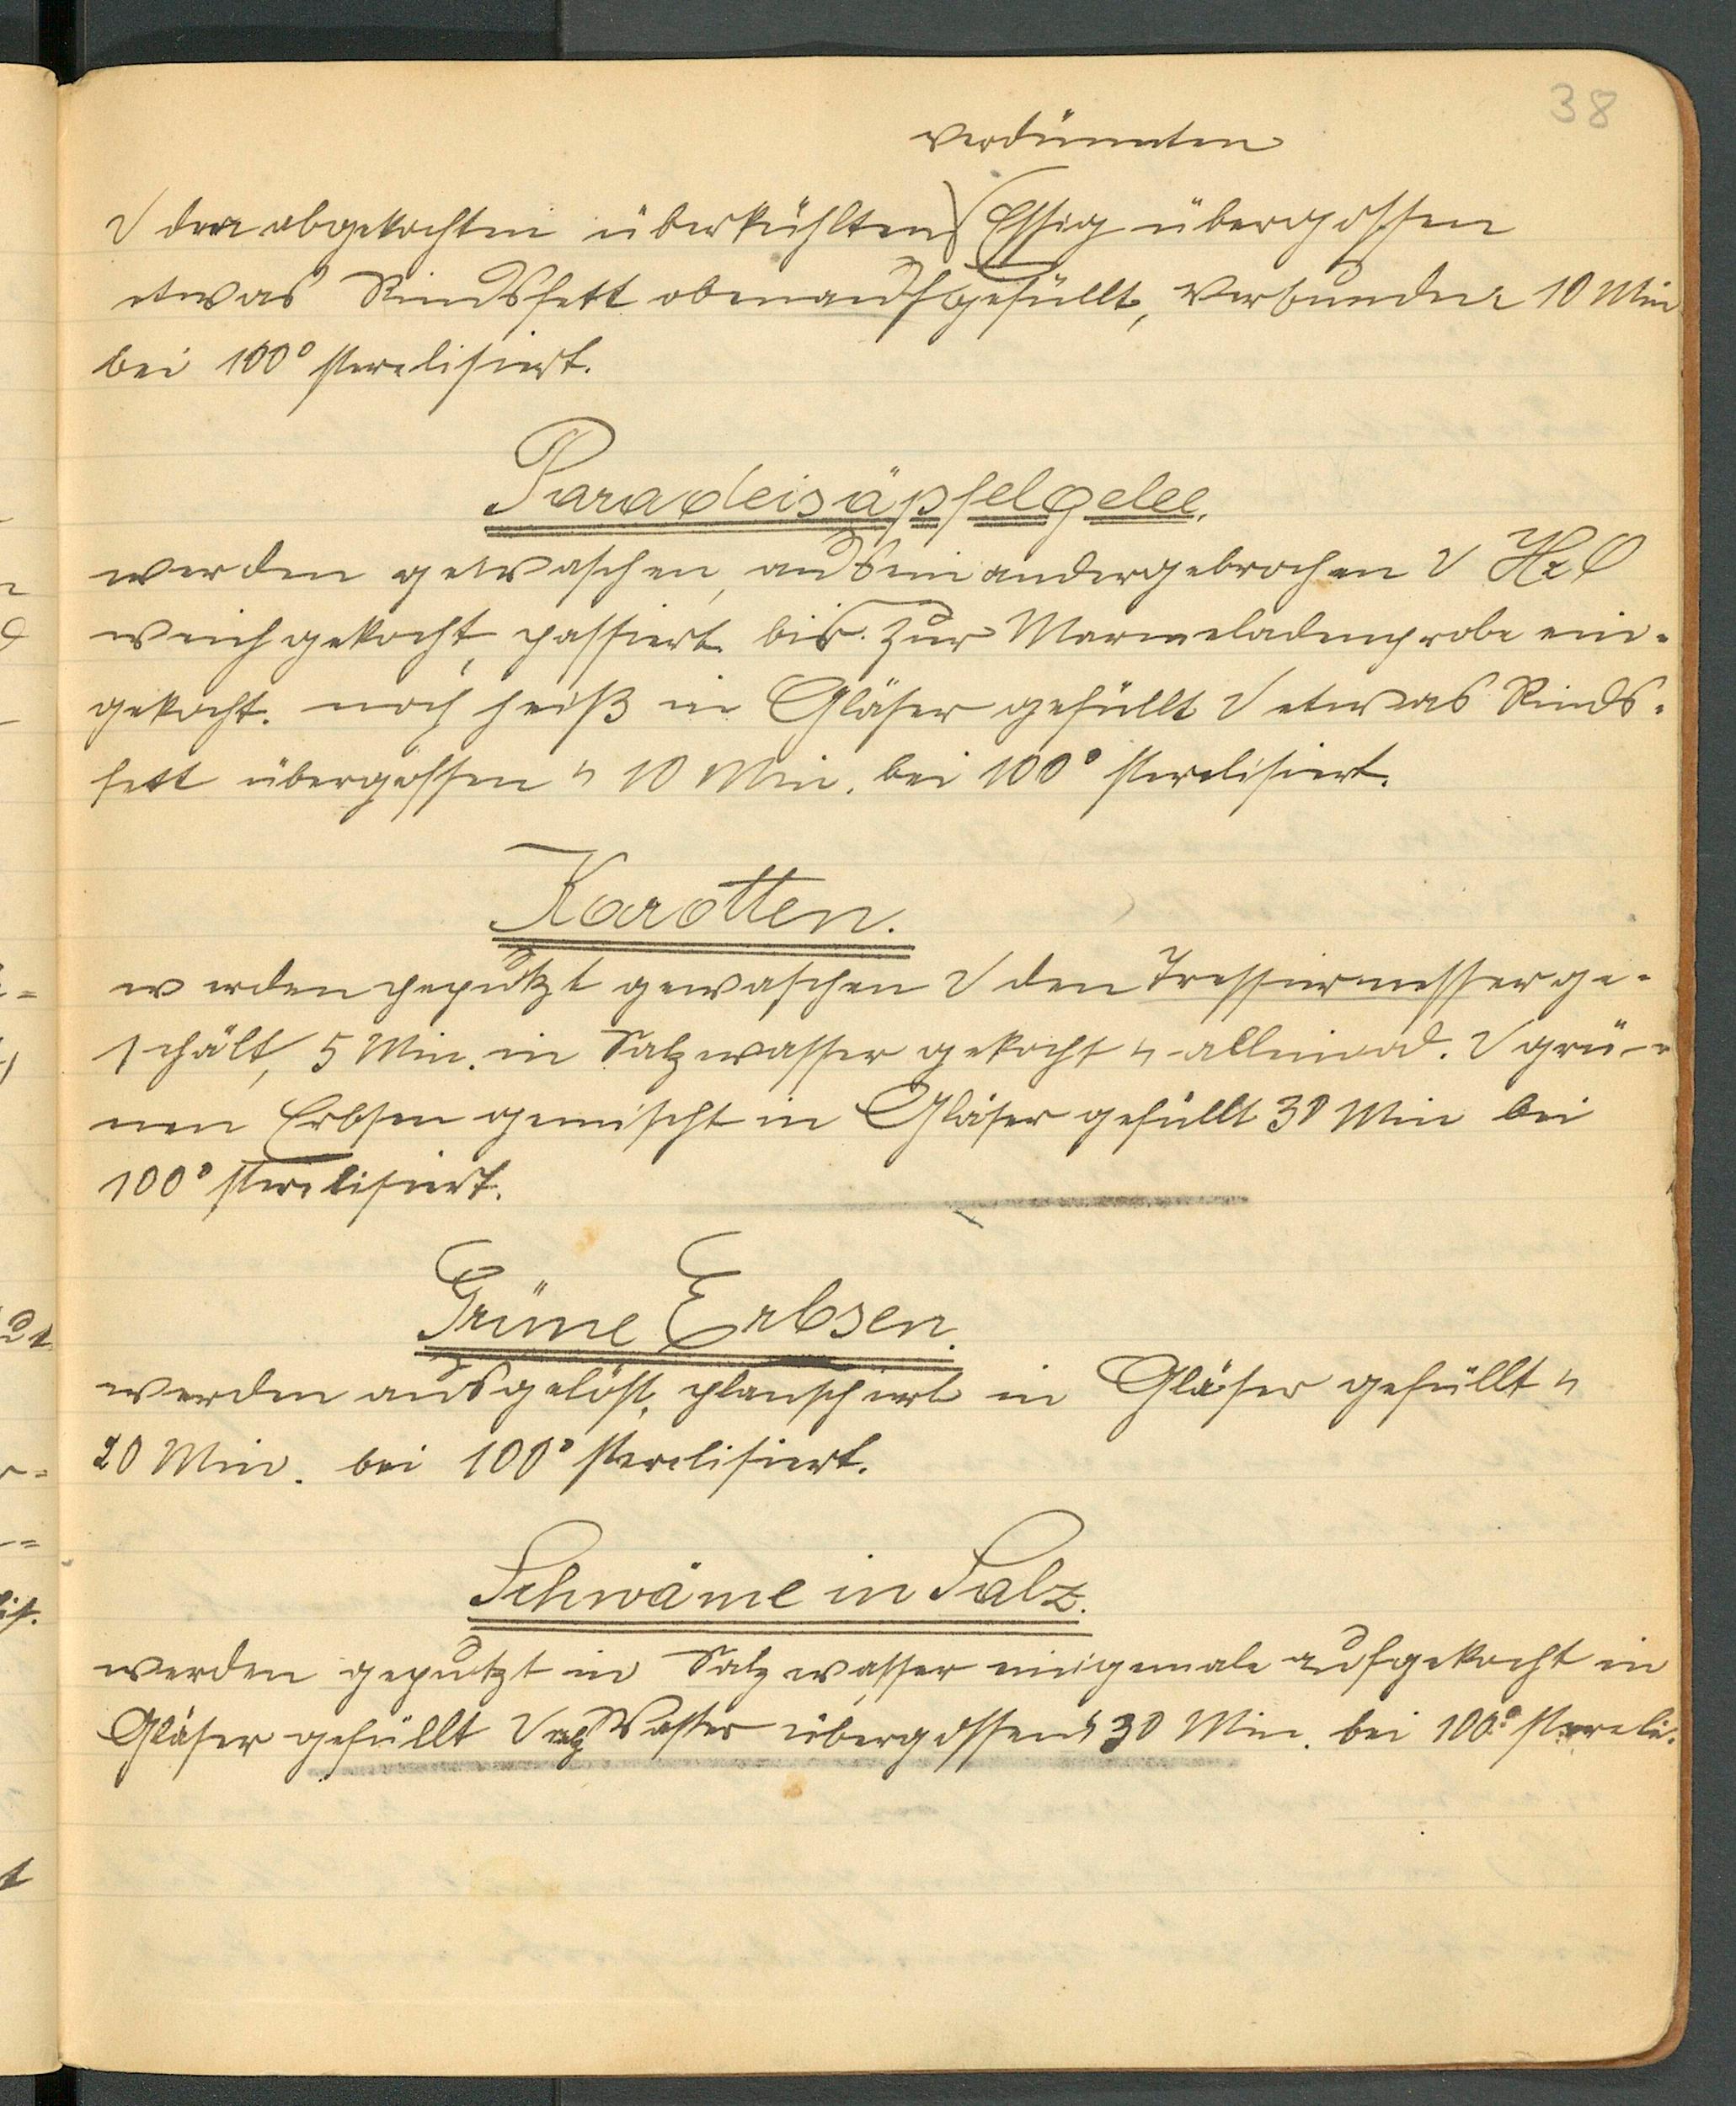 38
verdünnten
√ dem abgekochten überkühlten Essig übergossen
etwas Rindsfett obenauf gefüllt, verbunden 10 Min
bei 100° sterelisiert.
Paradeisäpfelgelee.
werden gewaschen, auseinandergebrochen √ H2O
weichgekocht, passiert bis zur Marmeladenprobe ein-
gekocht. noch heiß in Gläser gefüllt √ etwas Rinds-
fett übergossen u 10 Min. bei 100° sterelisiert.
Karotten.
werden geputzt gewaschen √ den Tressiermesser ge-
schält, 5 Min. in Salzwasser gekocht u allein od. √ grü-
nen Erbsen gemischt in Gläser gefüllt 30 Min bei
100° sterelisiert.
Grüne Erbsen.
werden ausgelöst, planschiert in Gläser gefüllt u
20 Min. bei 100° sterelisiert.
Schwäme in Salz.
werden geputzt in Salzwasser einigemale aufgekocht in
Gläser gefüllt √ Wasser übergossen u 30 Min. bei 100° stereli.